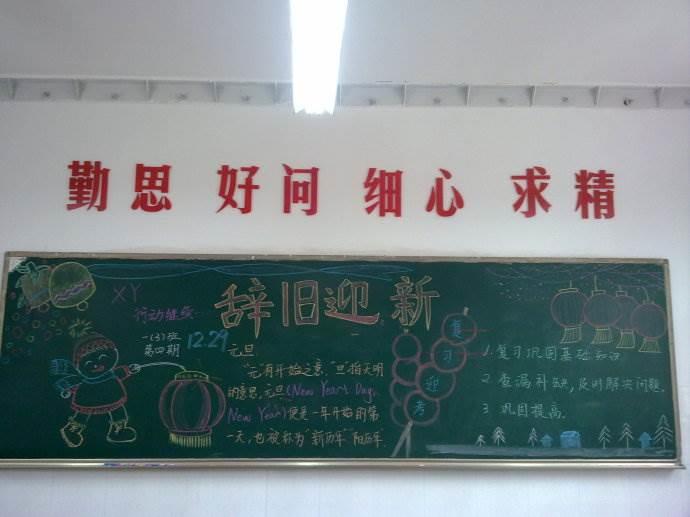 勤思 好问 细心 求精
辞旧迎新
XY
行动继续…
一(3)班
第四期
12.29
元旦
"元"有开始之意,"旦"指天明
的意思,元旦(New Year's Day,
New Year)便是一年开始的第
一天,也被称为"新历年""阳历年"
复
习
迎
考
1. 复习巩固基础知识
2. 查漏补缺,及时解决问题.
3. 巩固提高.